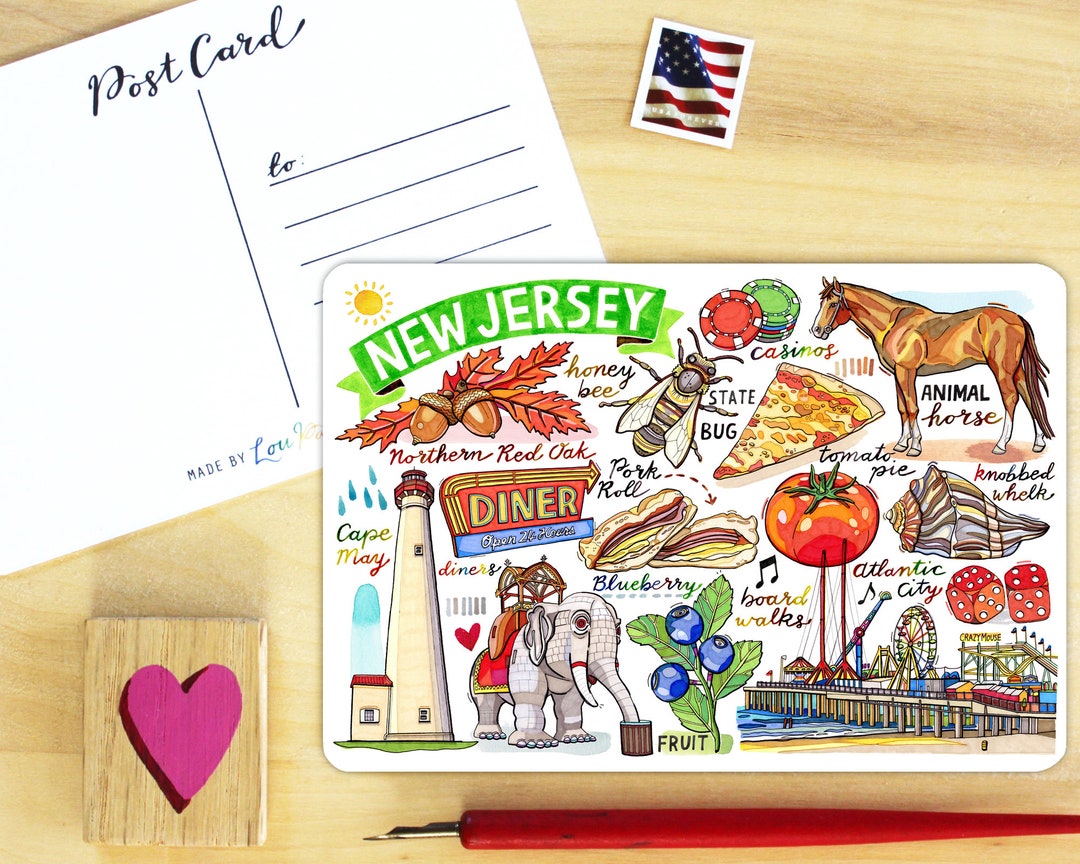 Post Card
to:
MADE BY Lou
USA FOREVER
NEW JERSEY
casinos
honey
bee
STATE
BUG
ANIMAL
horse
Northern Red Oak
tomato
pie
knobbed
whelk
Pork
Roll
DINER
Open 24 Hours
Cape
May
diners
Blueberry
board
walks
Atlantic
City
CRAZY MOUSE
FRUIT